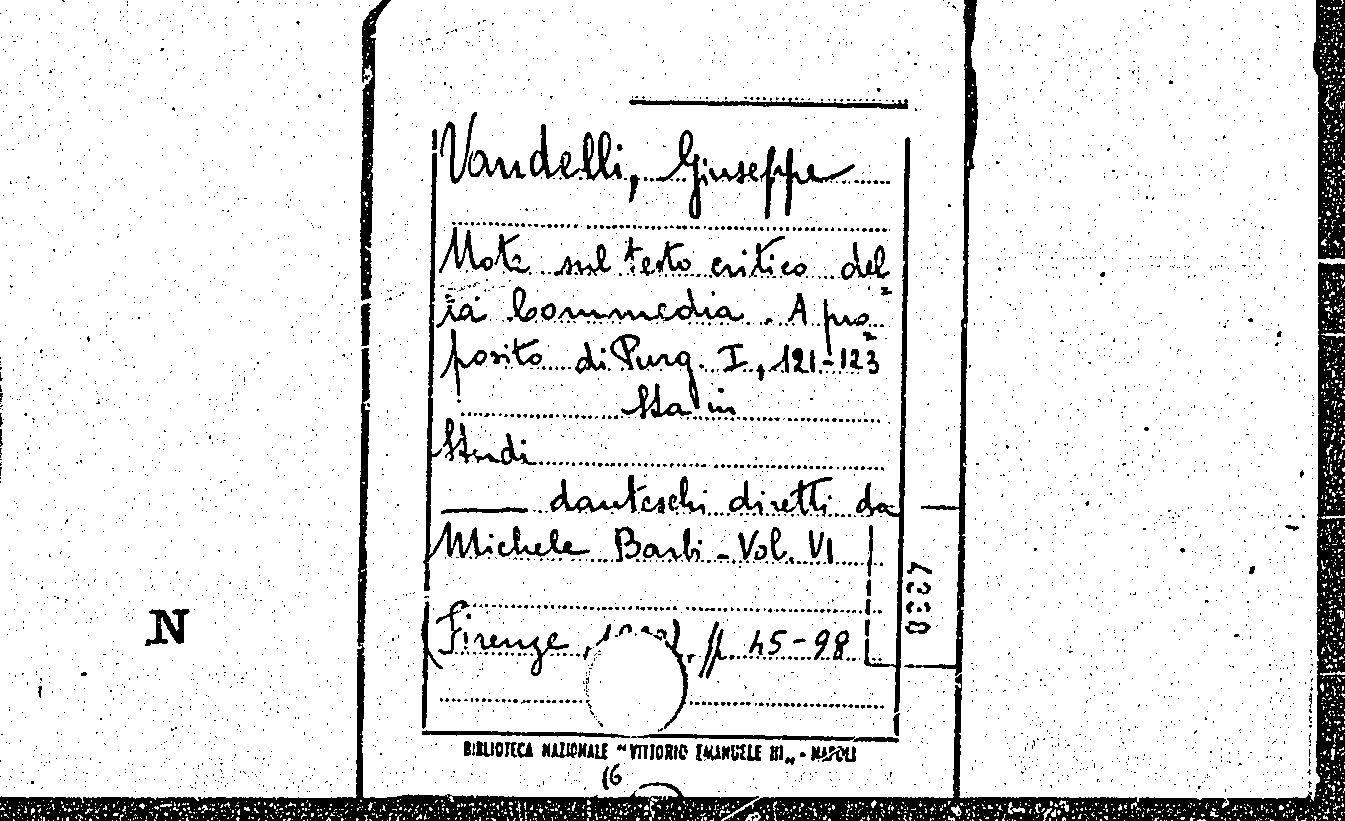 Vandelli, Giuseppe
Note sul testo critico del
la Commedia. A pro
posito di Purg. I, 121-123
Sta in
Studi
danteschi diretti da
Michele Barbi - Vol. VI
(Firenze, pp. 45-98
BIBLIOTECA NAZIONALE "VITTORIO EMANUELE III„ - NAPOLI
N